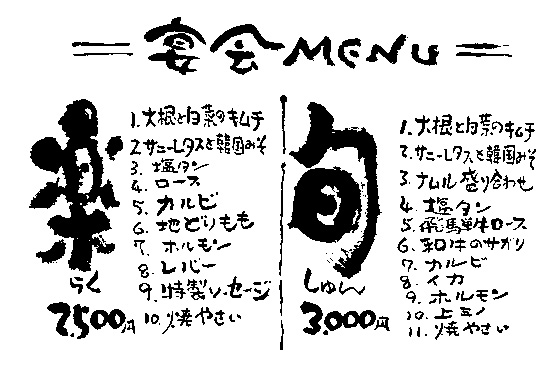 宴会MENU
楽
らく
2,500円
1. 大根と白菜のキムチ
2. サニーレタスと韓国みそ
3. 塩タン
4. ロース
5. カルビ
6. 地どりもも
7. ホルモン
8. レバー
9. 特製ソーセージ
10. 焼やさい
旬
しゅん
3,000円
1. 大根と白菜のキムチ
2. サニーレタスと韓国みそ
3. ナムル盛り合わせ
4. 塩タン
5. 飛馬単牛ロース
6. 和牛のサガリ
7. カルビ
8. イカ
9. ホルモン
10. 上ミノ
11. 焼やさい